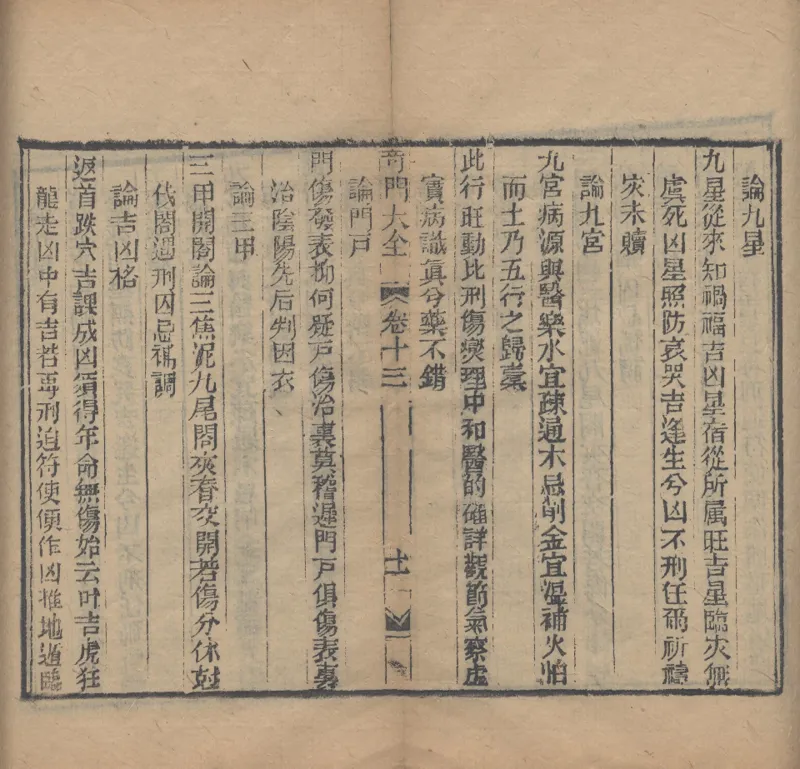 論九星
九星從來知禍福吉凶星宿從所属旺吉星臨灾無
虞死凶星照防哀哭吉逢生兮凶不刑任爲祈禱
灾未贖
論九宮
九宮病源與醫藥水宜疎通木忌削金宜濕補火怕
而土乃五行之歸藁
此行旺動比刑傷燮理中和醫的確詳觀節氣察虚
實病識眞兮藥不錯
奇門大全 卷十三 十一
論門戸
門傷發表抑何疑戸傷治裏莫稽遲門戸俱傷表裏
治陰陽先后判因衣、
論三甲
三甲開闔論三焦泥九尾閤亥春交開若傷分休尅
伐閤遇刑囚忌爲調
論吉凶格
返首跌穴吉課成凶須得年命無傷始云叶吉虎狂
龍走凶中有吉若再刑迫符使便作凶推地遁臨